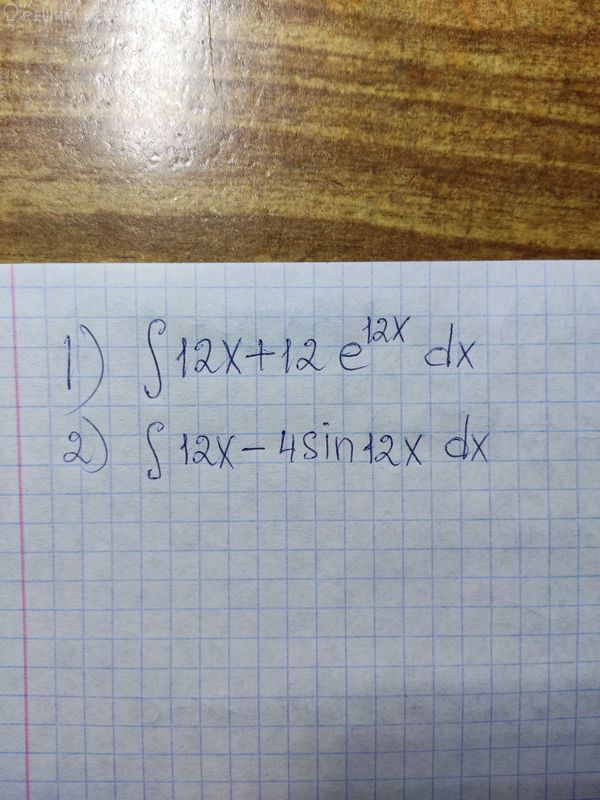 Решим
1) ∫12x+12e^{12x} dx
2) ∫12x-4sin12x dx